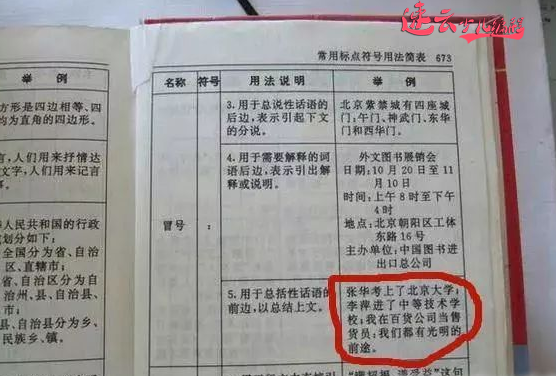 速云少儿编程
常用标点符号用法简表 673
举 例
方形是四边相等、四
均为直角的四边形。
言,人们用来抒情达
文字,人们用来记言
事。
人民共和国的行政
划分如下:
全国分为省、自治
区、直辖市;
省、自治区分为自
治州、县、自治县、
县、自治县分为乡、
民族乡、镇。
名称 符号 用 法 说 明 举 例
冒号 :
3. 用于总说性话语的
后边,表示引起下文
的分说。
北京紫禁城有四座城
门:午门、神武门、东华
门和西华门。
4. 用于需要解释的词
语后边,表示引出解
释或说明。
外文图书展销会
日期:10 月 20 日至 11
月 10 日
时间:上午 8 时至下午
4 时
地点:北京朝阳区工体
东路 16 号
主办单位:中国图书进
出口总公司
5. 用于总括性话语的
前边,以总结上文。
张华考上了北京大学;
李萍进了中等技术学
校;我在百货公司当售
货员:我们都有光明的
前途。